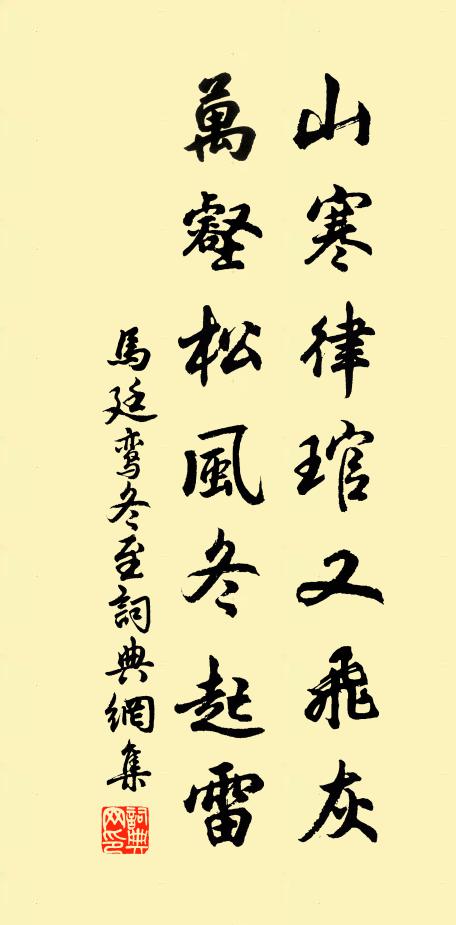 山寒律琯又飛灰
萬壑松風冬起雷
馬廷鸞冬至詞典網集
詞典网印